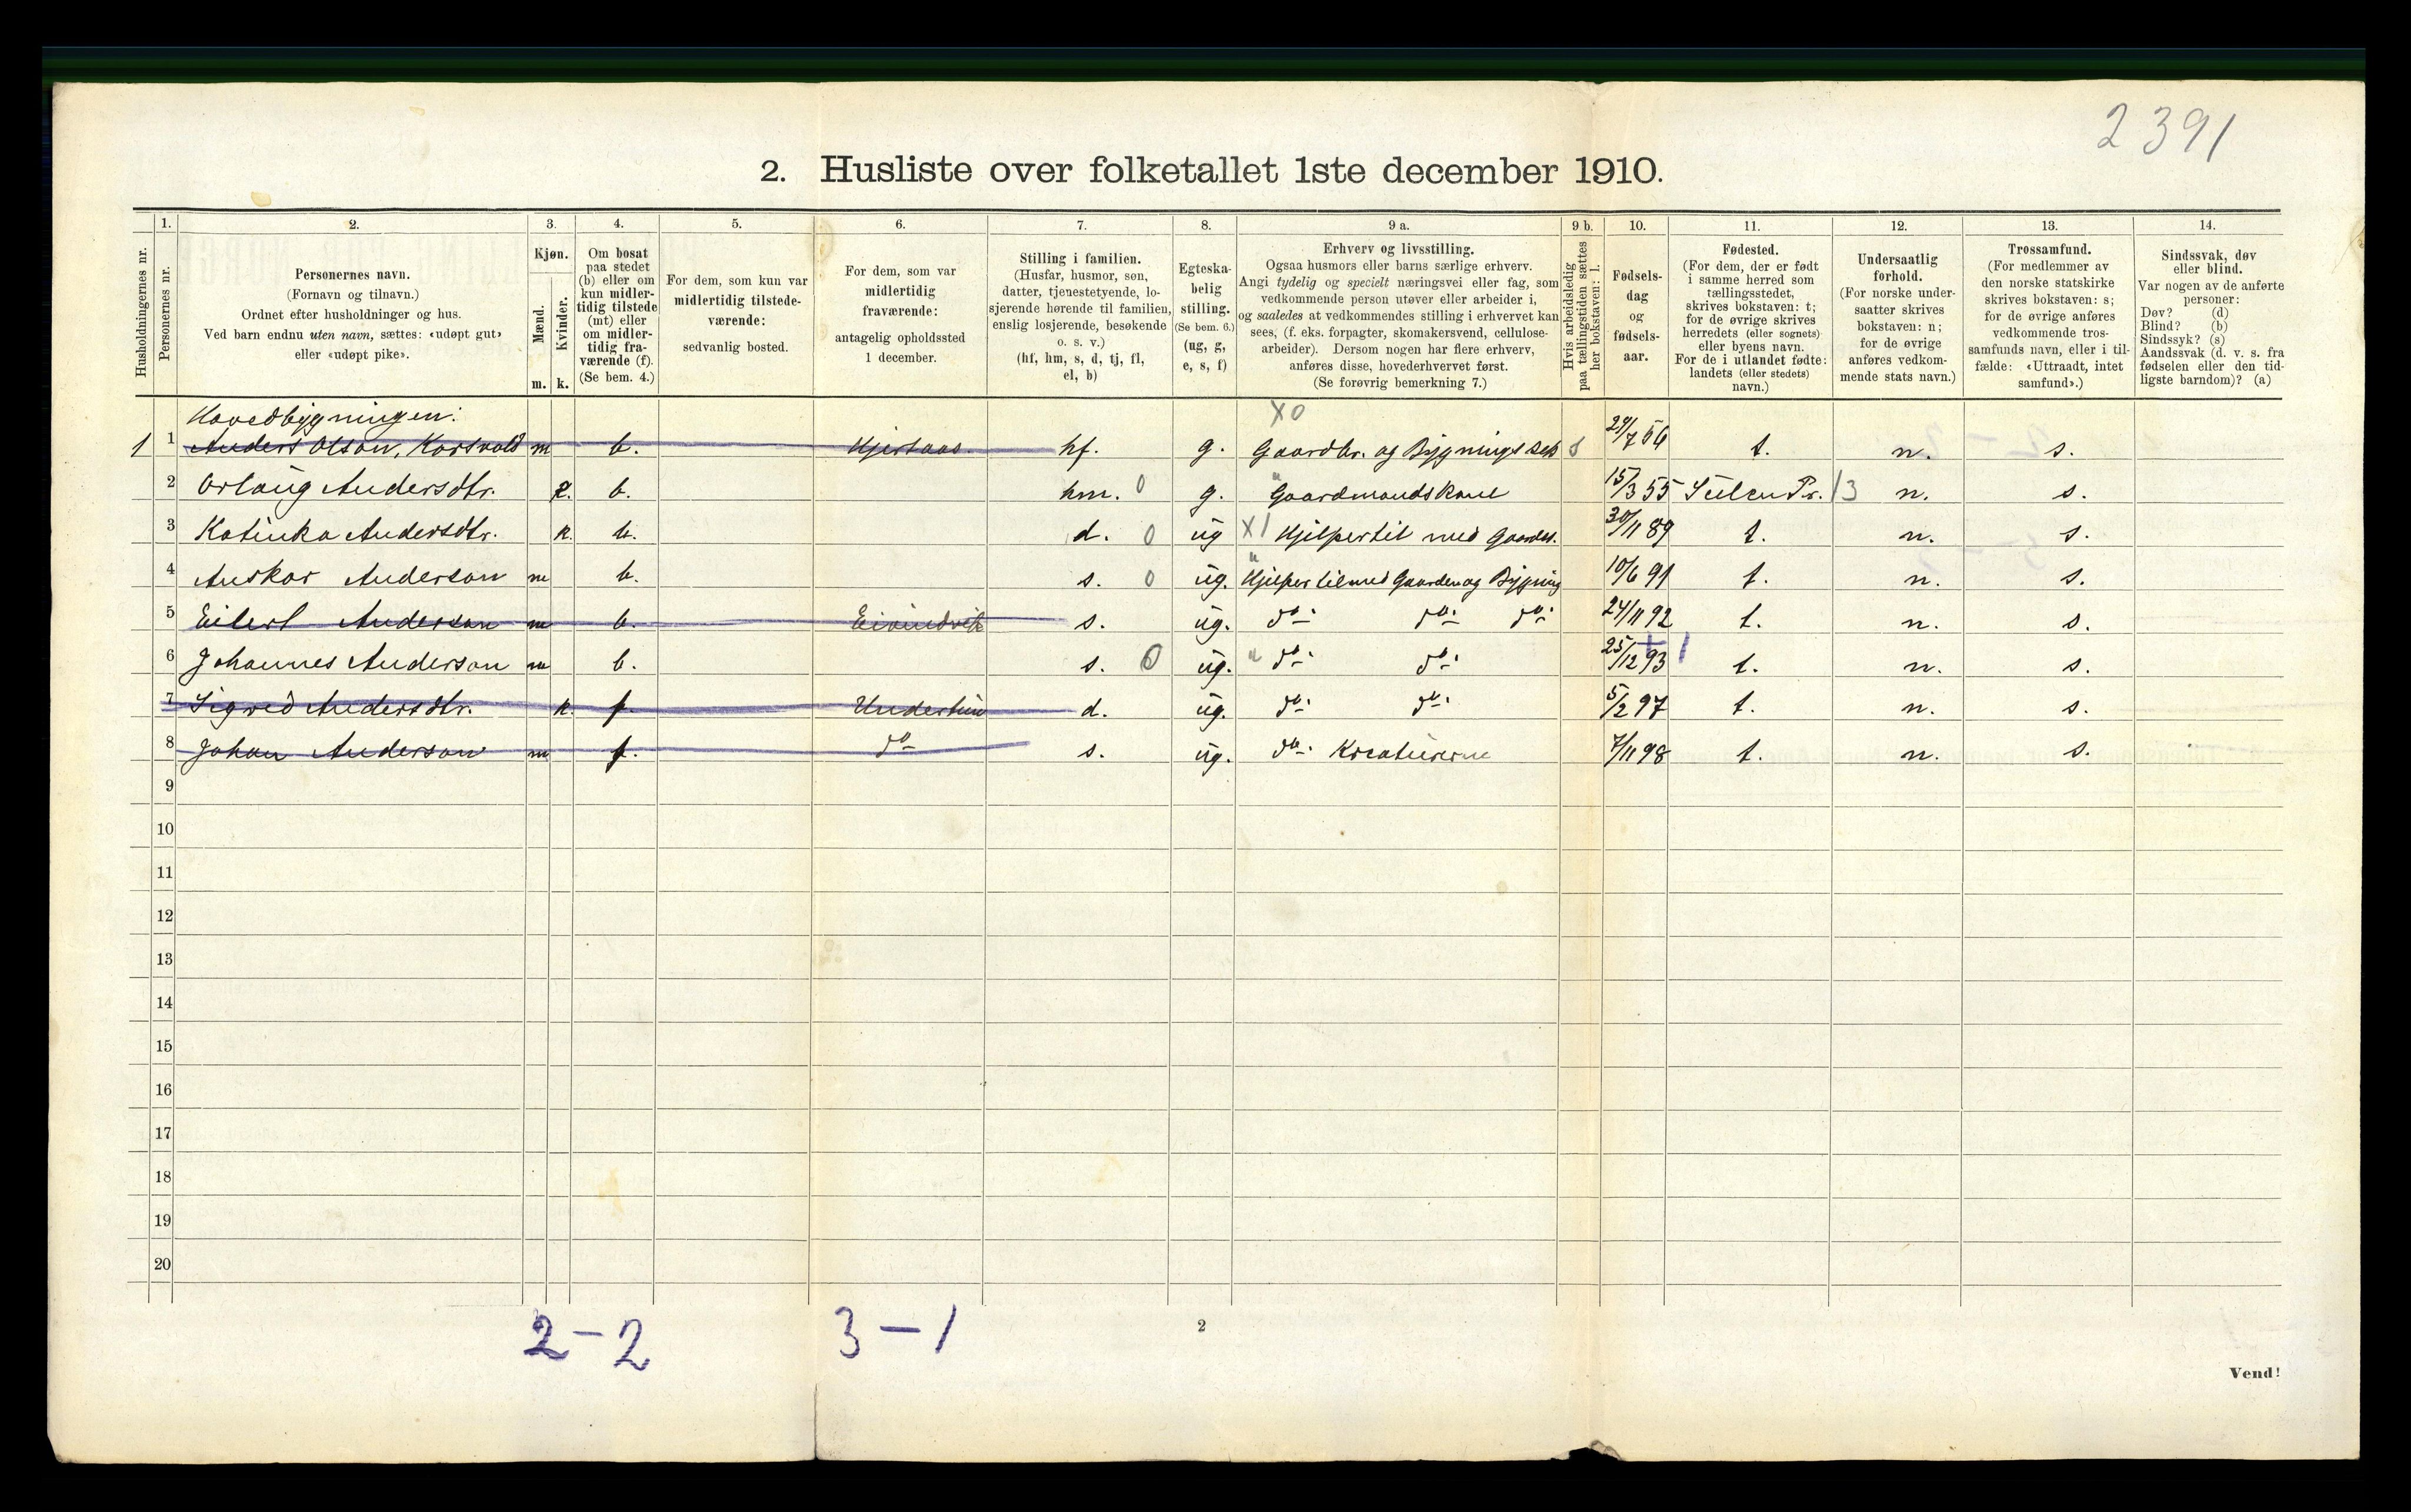 2391
2. Husliste over folketallet 1ste december 1910.
Husholdningernes nr.
1.
Personernes nr.
2.
Personernes navn.
(Fornavn og tilnavn.)
Ordnet efter husholdninger og hus.
Ved barn endnu uten navn, sættes: «udøpt gut»
eller «udøpt pike».
3.
Kjøn.
Mænd.
Kvinder.
m. k.
4.
Om bosat
paa stedet
(b) eller om
kun midler-
tidig tilstede
(mt) eller
om midler-
tidig fra-
værende (f).
(Se bem. 4.)
5.
For dem, som kun var
midlertidig tilstede-
værende:
sedvanlig bosted.
6.
For dem, som var
midlertidig
fraværende:
antagelig opholdssted
1 december.
7.
Stilling i familien.
(Husfar, husmor, søn,
datter, tjenestetyende, lo-
sjerende hørende til familien,
enslig losjerende, besøkende
o. s. v.)
(hf, hm, s, d, tj, fl,
el, b)
8.
Egteska-
belig
stilling.
(Se bem. 6.)
(ug, g,
e, s, f)
9 a.
Erhverv og livsstilling.
Ogsaa husmors eller barns særlige erhverv.
Angi tydelig og specielt næringsvei eller fag, som
vedkommende person utøver eller arbeider i,
og saaledes at vedkommendes stilling i erhvervet kan
sees, (f. eks. forpagter, skomakersvend, cellulose-
arbeider). Dersom nogen har flere erhverv,
anføres disse, hovederhvervet først.
(Se forøvrig bemerkning 7.)
9 b.
Hvis arbeidsledig
paa tællingstiden sættes
her bokstaven: l.
10.
Fødsels-
dag
og
fødsels-
aar.
11.
Fødested.
(For dem, der er født
i samme herred som
tællingsstedet,
skrives bokstaven: t;
for de øvrige skrives
herredets (eller sognets)
eller byens navn.
For de i utlandet fødte:
landets (eller stedets)
navn.)
12.
Undersaatlig
forhold.
(For norske under-
saatter skrives
bokstaven: n;
for de øvrige
anføres vedkom-
mende stats navn.)
13.
Trossamfund.
(For medlemmer av
den norske statskirke
skrives bokstaven: s;
for de øvrige anføres
vedkommende tros-
samfunds navn, eller i til-
fælde: «Uttraadt, intet
samfund».)
14.
Sindssvak, døv
eller blind.
Var nogen av de anførte
personer:
Døv? (d)
Blind? (b)
Sindssyk? (s)
Aandssvak (d. v. s. fra
fødselen eller den tid-
ligste barndom)? (a)
Hovedbygningen: X0
1 1 Anders Olson, Korsvold m b. Hjersaas hf. g. Gaardbr. og Bygnings 29/7 56 t. n. s.
2 Orlaug Andersdtr. k. b. hm. 0 g. " Gaardmandskone 15/3 55 Sulen Pr. 13 n. s.
3 Katinka Andersdtr. k. b. d. 0 ug X1 Hjelper til med Gaarden 30/11 89 t. n. s.
4 Anskar Anderson m b. s. 0 ug. " Hjelper til med Gaarden og Bygning 10/6 91 t. n. s.
5 Eilert Anderson m b. Eivindvik s. ug. do. do. do. 24/11 92 t. n. s.
6 Johannes Anderson m b. s. 0 ug. " do. do. 25/12 93 + 1 t. n. s.
7 Sigrid Andersdtr. k. f. d. ug. do. do. 5/2 97 t. n. s.
8 Johan Anderson m f. do s. ug. do. Kreaturerne 7/11 98 t. n. s.
9
10
11
12
13
14
15
16
17
18
19
20
2 – 2 3 – 1
2
Vend!